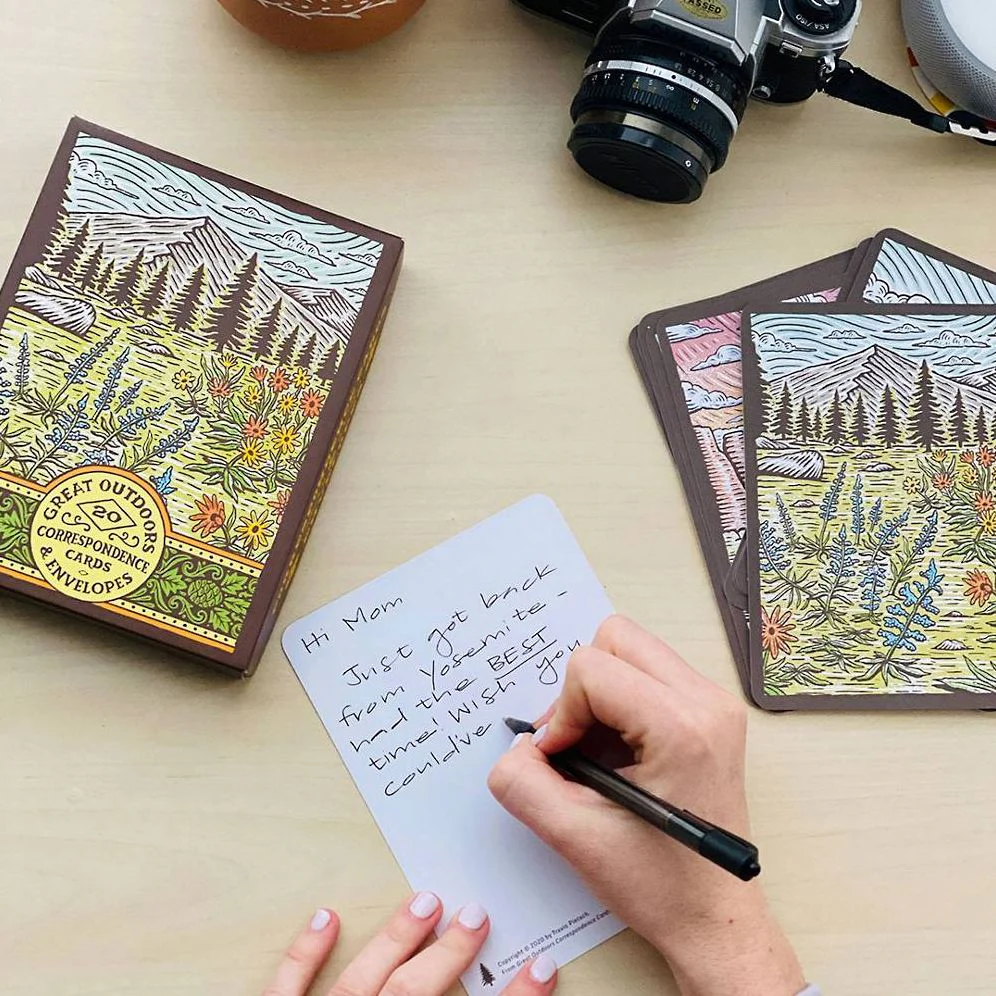 PASSED
ASA/ISO
GREAT OUTDOORS
20
CORRESPONDENCE
CARDS
& ENVELOPES
Hi Mom
Just got back
from Yosemite -
had the BEST
time! Wish you
could've
Copyright © 2020 by Travis Pietsch
From Great Outdoors Correspondence Cards